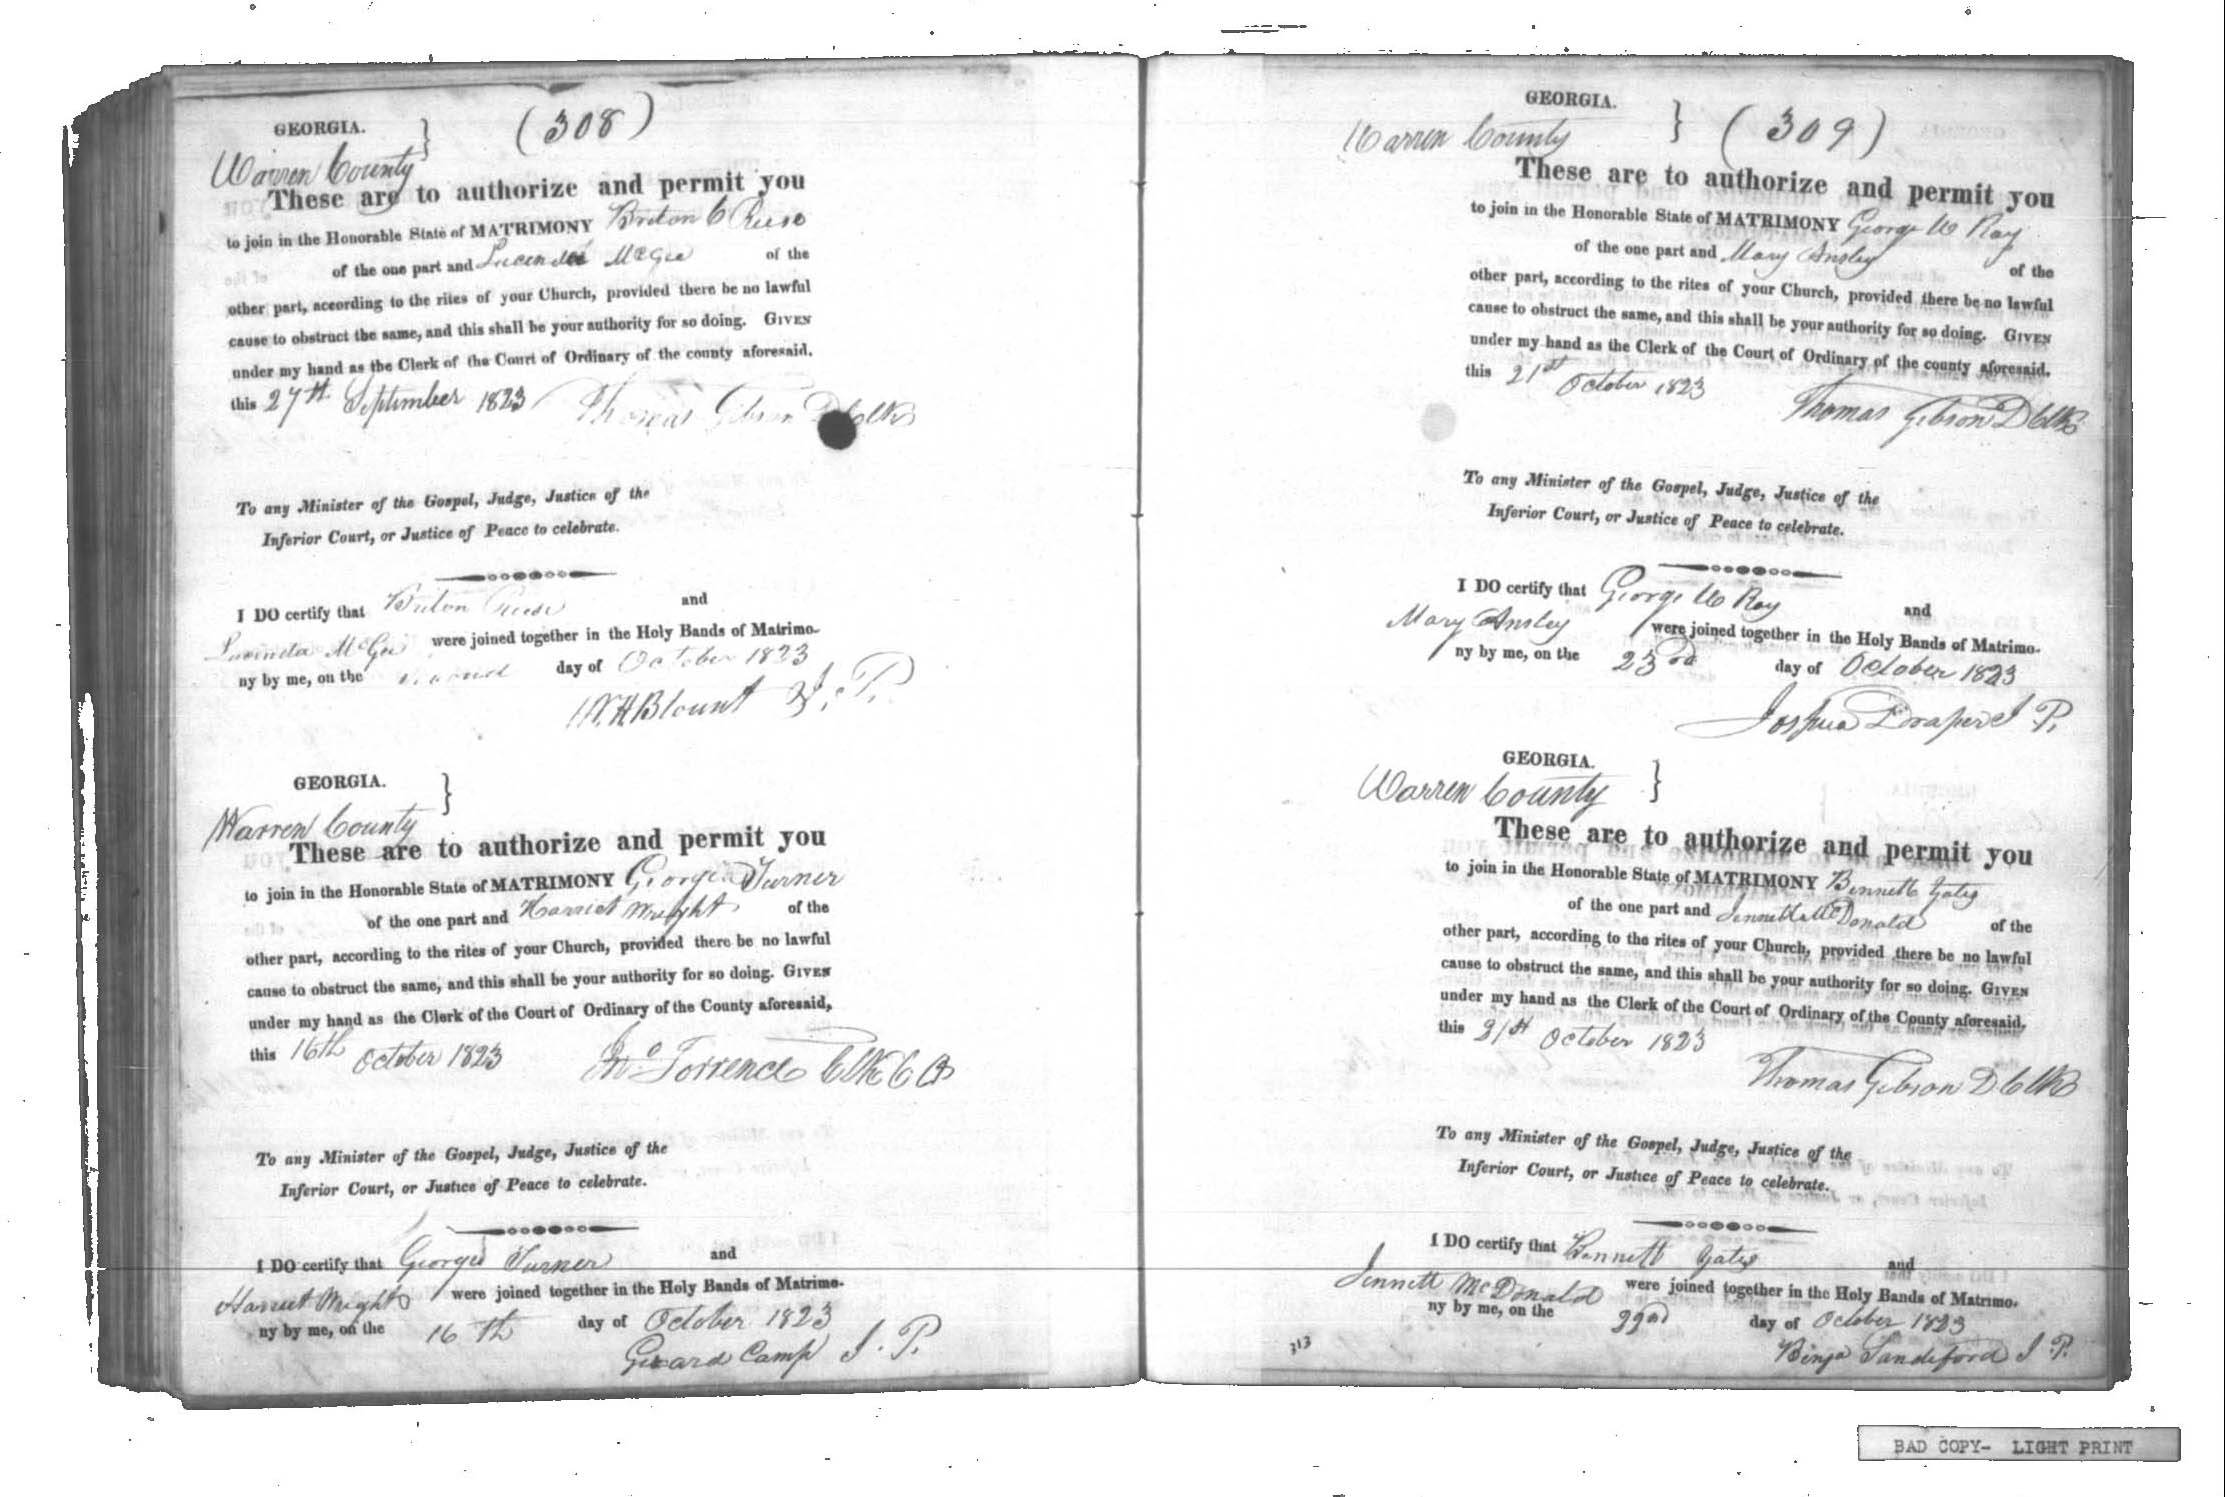 GEORGIA.
(308)
Warren County
These are to authorize and permit you
to join in the Honorable State of MATRIMONY Briton C Reese
of the one part and Lucinda McGee of the
other part, according to the rites of your Church, provided there be no lawful
cause to obstruct the same, and this shall be your authority for so doing. GIVEN
under my hand as the Clerk of the Court of Ordinary of the county aforesaid.
this 27th September 1823
Thomas Gibson D Clk
To any Minister of the Gospel, Judge, Justice of the
Inferior Court, or Justice of Peace to celebrate.
I DO certify that Briton Reese and
Lucinda McGee were joined together in the Holy Bands of Matrimo-
ny by me, on the second day of October 1823
W. H Blount J. P.
GEORGIA.
Warren County
These are to authorize and permit you
to join in the Honorable State of MATRIMONY George Turner
of the one part and Harriet Wright of the
other part, according to the rites of your Church, provided there be no lawful
cause to obstruct the same, and this shall be your authority for so doing. GIVEN
under my hand as the Clerk of the Court of Ordinary of the County aforesaid,
this 16th October 1823
Jno Torrence Clk C O
To any Minister of the Gospel, Judge, Justice of the
Inferior Court, or Justice of Peace to celebrate.
I DO certify that George Turner and
Harriet Wright were joined together in the Holy Bands of Matrimo-
ny by me, on the 16th day of October 1823
Gerard Camp J. P.
GEORGIA.
Warren County
(309)
These are to authorize and permit you
to join in the Honorable State of MATRIMONY George W Ray
of the one part and Mary Ansley of the
other part, according to the rites of your Church, provided there be no lawful
cause to obstruct the same, and this shall be your authority for so doing. GIVEN
under my hand as the Clerk of the Court of Ordinary of the county aforesaid.
this 21st October 1823
Thomas Gibson D Clk
To any Minister of the Gospel, Judge, Justice of the
Inferior Court, or Justice of Peace to celebrate.
I DO certify that George W Ray and
Mary Ansley were joined together in the Holy Bands of Matrimo-
ny by me, on the 23rd day of October 1823
Joshua Draper J. P.
GEORGIA.
Warren County
These are to authorize and permit you
to join in the Honorable State of MATRIMONY Bennett Yates
of the one part and Jennett McDonald of the
other part, according to the rites of your Church, provided there be no lawful
cause to obstruct the same, and this shall be your authority for so doing. GIVEN
under my hand as the Clerk of the Court of Ordinary of the County aforesaid,
this 21st October 1823
Thomas Gibson D Clk
To any Minister of the Gospel, Judge, Justice of the
Inferior Court, or Justice of Peace to celebrate.
I DO certify that Bennett Yates and
Jennett McDonald were joined together in the Holy Bands of Matrimo-
ny by me, on the 22nd day of October 1823
Binja Sandeford J P.
313
BAD COPY- LIGHT PRINT